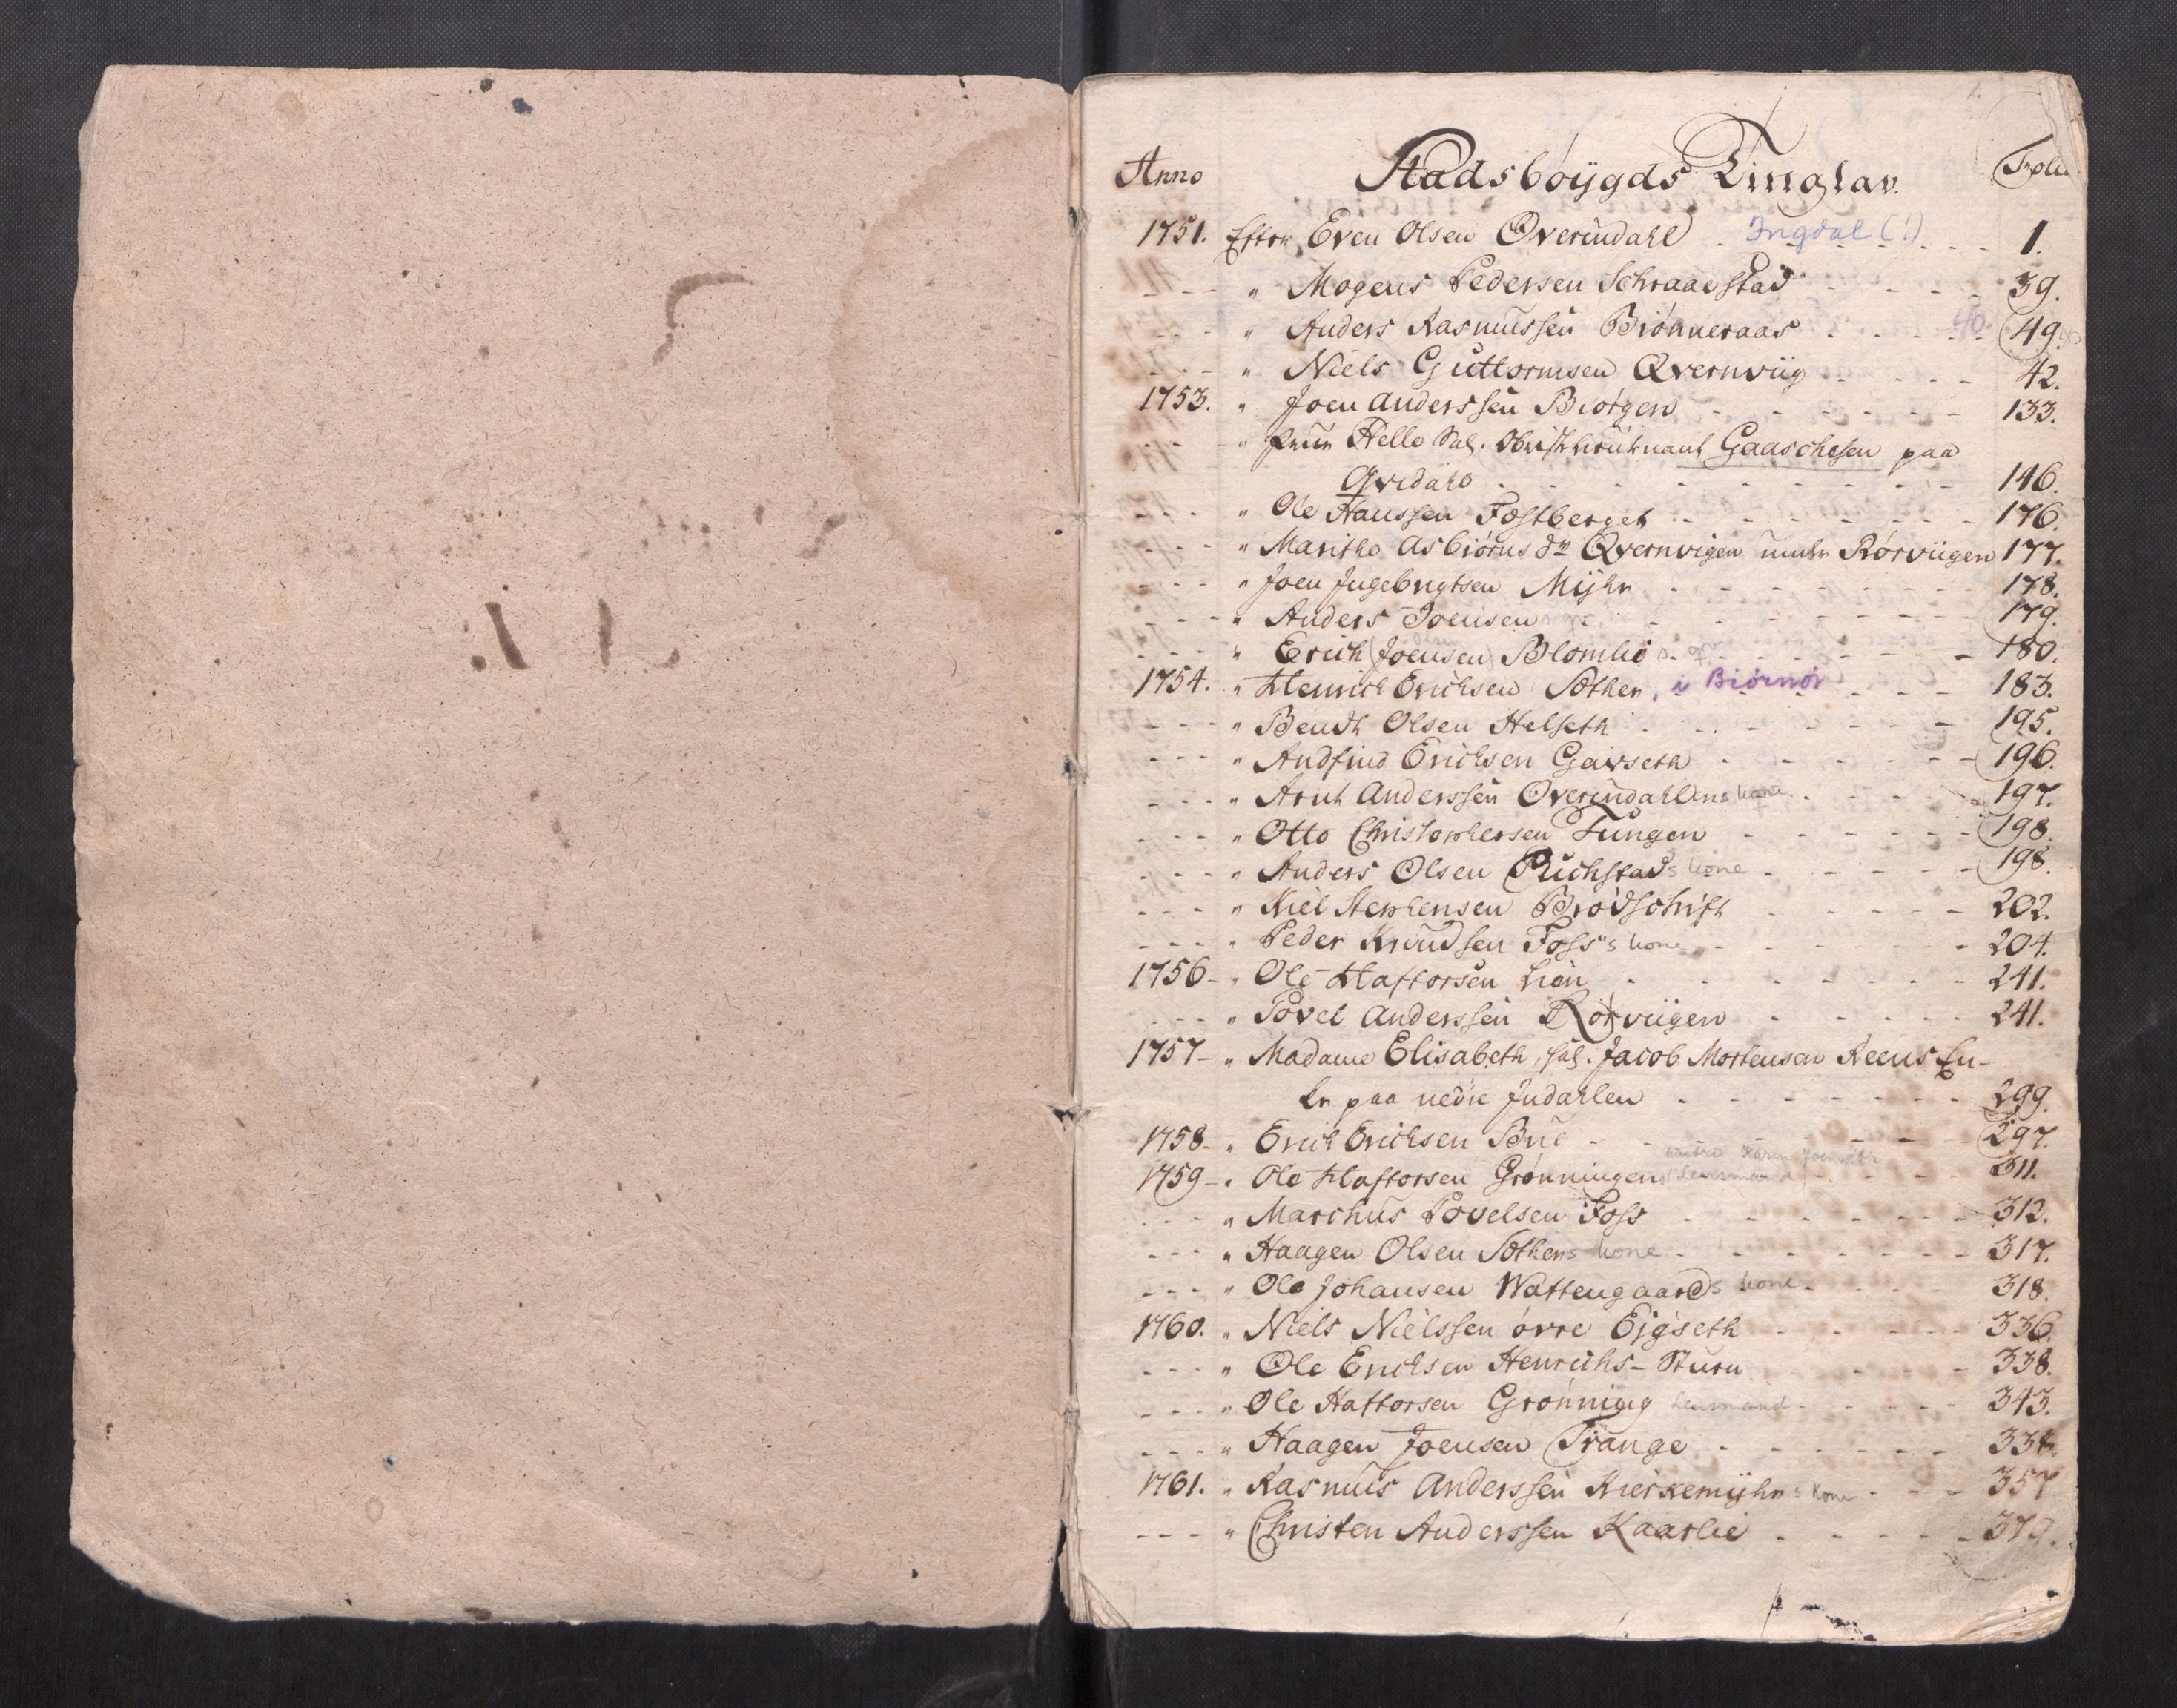 Anno Stadsbøygds Tinglav. Folio
1751. Efter Even Olsen Overindahl Ingdal (!) 1.
" Mogens Pedersen Schraaestad 39.
" Anders Rasmussen Biønneraas 40. 49.
" Niels Guttormsen Qvernviig 42.
1753. " Joen Anderssen Biørgen 133.
" Frue Helle Sal. Obristlieutenant Gaaschesen paa
Qvidahl 146.
" Ole Hanssen Fæstberget 176.
" Marithe Asbiørnsdr Qvernvigen under Rørviigen 177.
" Joen Ingebrigtsen Mÿhr 178.
" Anders Joensen 179.
" Erich Joensen Blomlie 180.
1754. " Henrich Erichsen Sæther, i Biørnør 183.
" Bendt Olsen Helseth 195.
" Andfind Erichsen Garseth 196.
" Arnt Anderssen Overindahlens kone 197.
" Otto Christophersen Tungen 198.
" Anders Olsen Richstads kone 198.
" Kiel Stephensen Brødschift 202.
" Peder Knudsen Foss's kone 204.
1756 " Ole Haftorsen Lien 241.
" Povel Anderssen Rørviigen 241.
1757 " Madame Elisabeth, sal. Jacob Mortensen Reens En-
ke paa nedre Indahlen 299.
1758 " Erich Erichsen Bue 297.
1759 " Ole Haftorsen Grønningen Lensmand hustru Karen Joensdtr 311.
" Marchus Povelsen Foss 312.
" Haagen Olsen Sæthers kone 317.
" Ole Johansen Wattengaards kone 318.
1760. " Niels Nielssen øvre Ejgseth 336.
" Ole Erichsen Henrichs-Stuen 338.
" Ole Haftorsen Grønning Lensmand 343.
" Haagen Joensen Trange 338.
1761. " Rasmus Anderssen Kierkemÿhrs Kone 357
" Christen Anderssen Kaarlie 379.